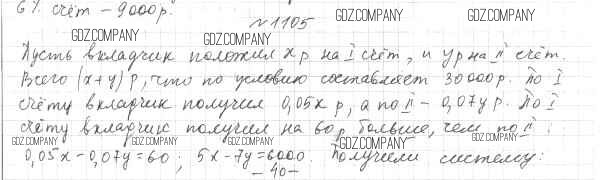 6% счёт – 9000 р.
GDZ.COMPANY
№ 1105
GDZ.COMPANY GDZ.COMPANY
Пусть вкладчик положил x р на I счёт, и y р на II счёт.
Всего (x+y) р, что по условию составляет 30000 р. По I
счёту вкладчик получил 0,05x р, а по II – 0,07y р. По I
счёту вкладчик получил на 60 р больше, чем по II.
GDZ.COMPANY GDZ.COMPANY GDZ.COMPANY GDZ.COMPANY GDZ.COMPANY
0,05x – 0,07y = 60; 5x – 7y = 6000. Получили систему:
– 40 –